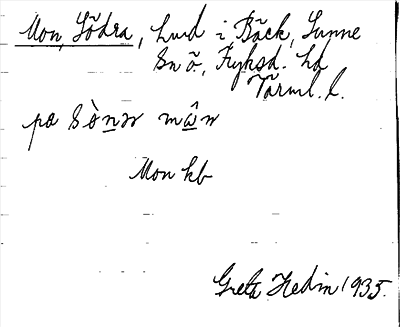 Mon, Södra, hmd i Bäck, Sunne
sn ö., Fryksd. hd
Värml. l.
pa sὸnɚ mân
Mon kb
Greta Hedin 1935.